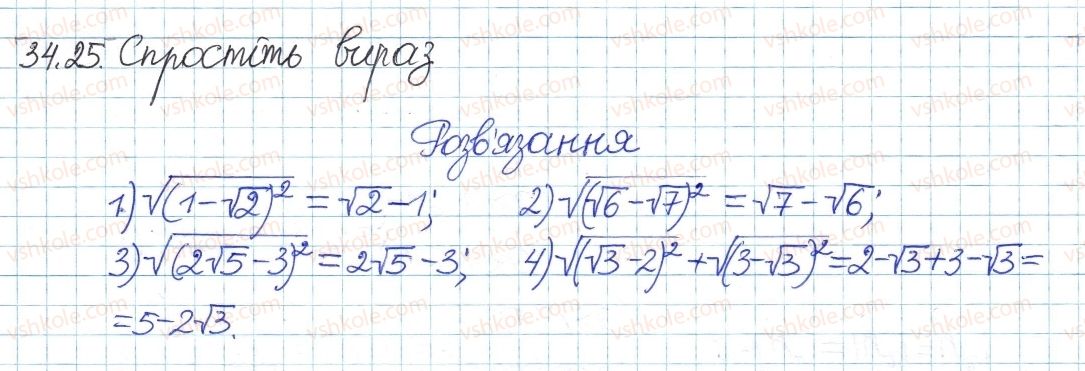 34.25. Спростіть вираз
Розв'язання
1) √(1-√2)² = √2-1; 2) √(√6-√7)² = √7-√6;
3) √(2√5-3)² = 2√5-3; 4) √(√3-2)² + √(3-√3)² = 2-√3+3-√3 =
= 5-2√3.